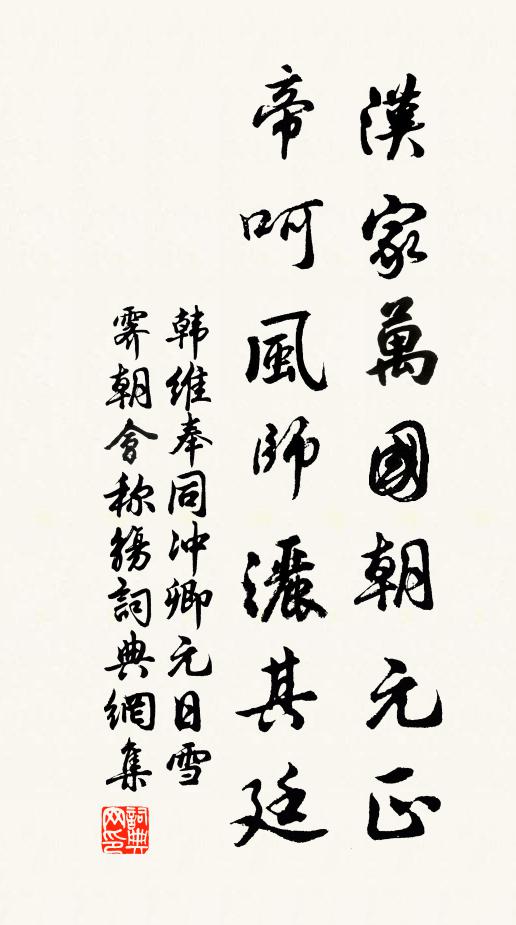 漢家萬國朝元正
帝呵風師灑其廷
韩維奉同冲卿元日雪
霽朝會称觴詞典網集
詞典
网印